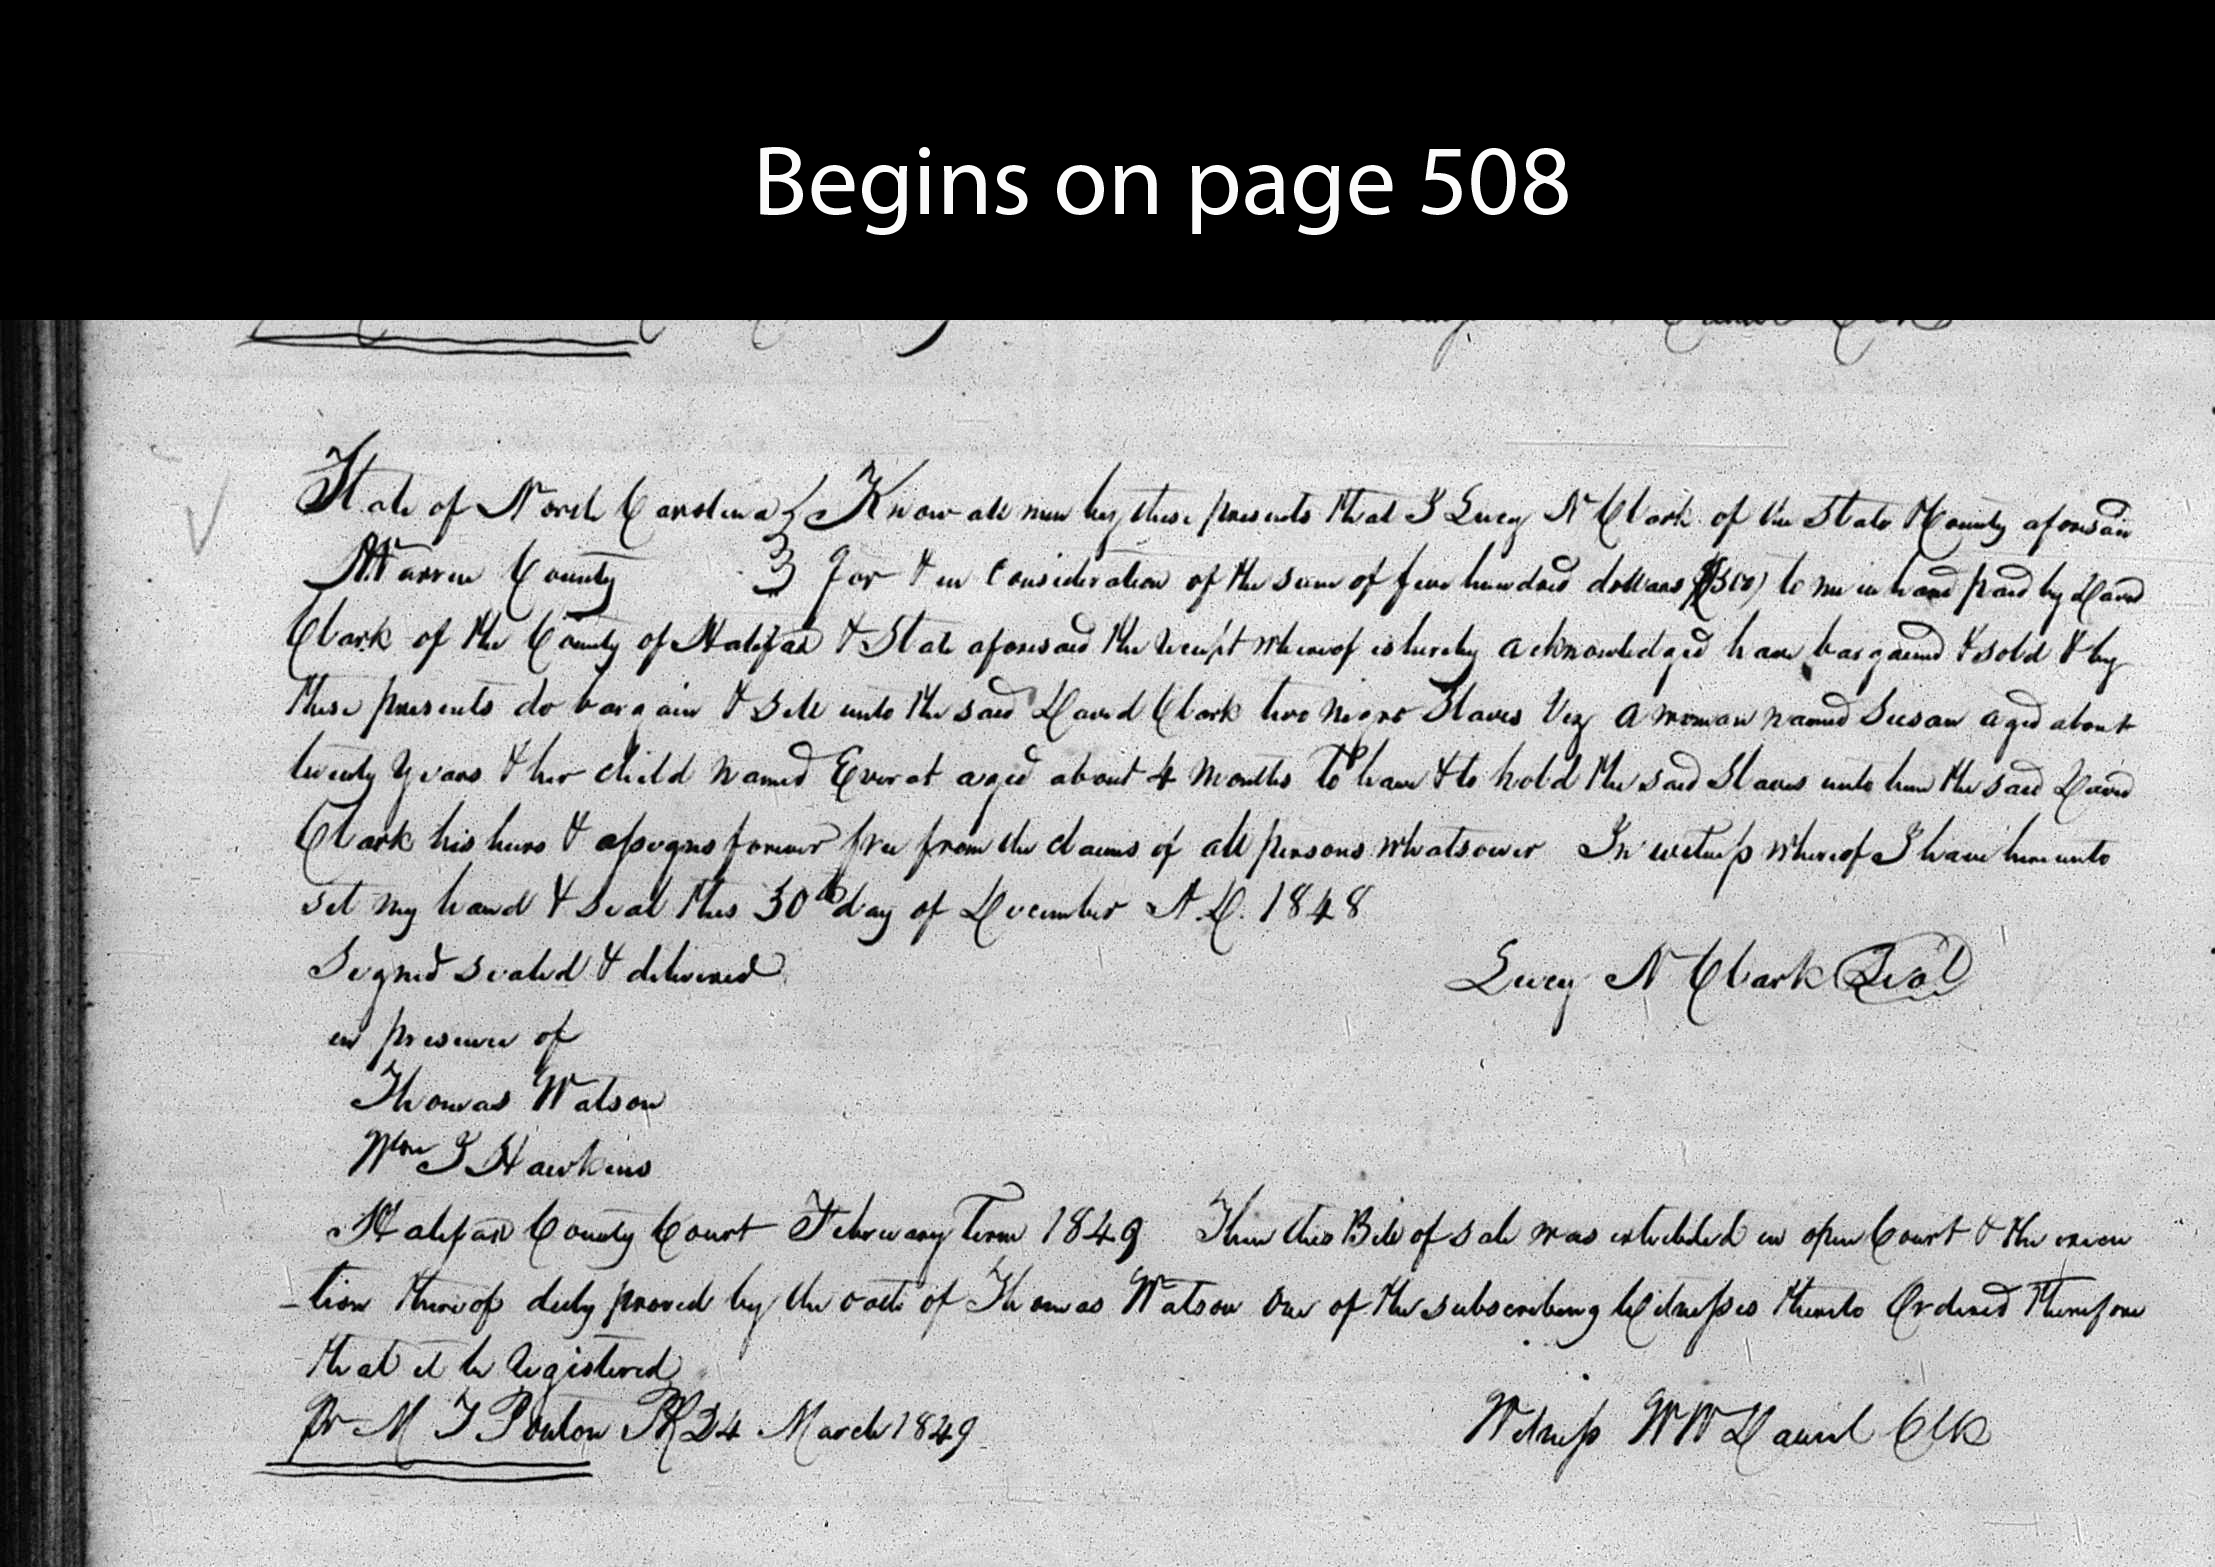 Begins on page 508
State of North Carolina } Know all men by these presents that I Lucy N Clark of the State & County aforesaid
Warren County } For & in Consideration of the sum of five hundred dollars ($500) to me in hand paid by David
Clark of the County of Halifax & State aforesaid the receipt whereof is hereby acknowledged have bargained & sold & by
these presents do bargain & sell unto the said David Clark two negro Slaves Viz a woman named Susan aged about
twenty years & her child named Everat aged about 4 months To have & to hold the said Slaves unto him the said David
Clark his heirs & assigns forever free from the claims of all persons whatsoever In witness whereof I have hereunto
set my hand & seal this 30th day of December A.D. 1848
Signed sealed & delivered Lucy N Clark Seal
in presence of
Thomas Watson
Wm J Hawkins
Halifax County Court February Term 1849 Then this Bill of sale was exhibited in open Court & the execu
-tion thereof duly proved by the oath of Thomas Watson one of the subscribing Witnesses thereto Ordered therefore
that it be registered
Pr M T Ponton PR 24 March 1849 Witness W W Daniel Clk